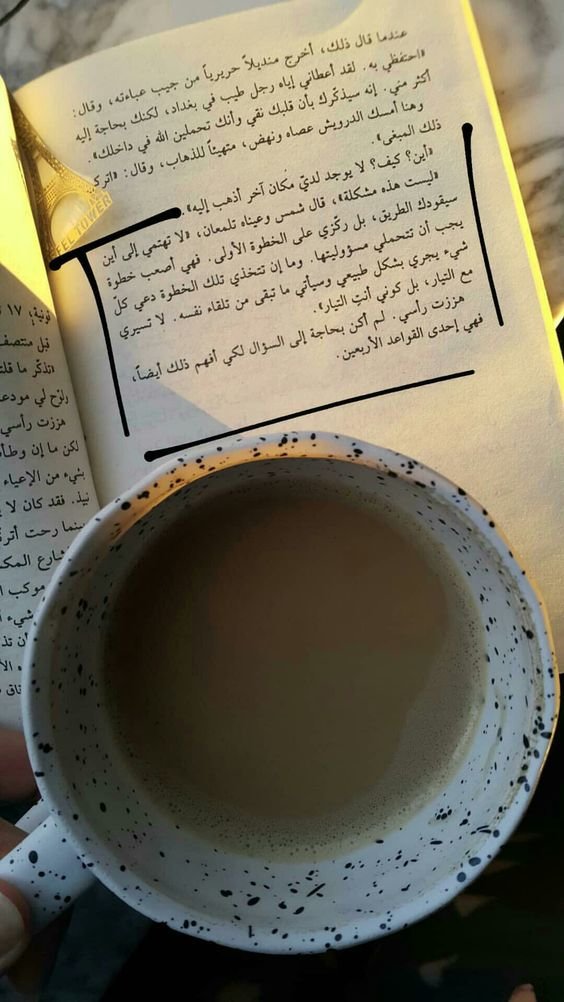 عندما قال ذلك، أخرج منديلاً حريرياً من جيب عباءته، وقال:
«احتفظي به. لقد أعطاني إياه رجل طيب في بغداد، لكنك بحاجة إليه
أكثر مني. إنه سيذكّرك بأن قلبك نقي وأنك تحملين الله في داخلك».
وهنا أمسك الدرويش عصاه ونهض، متهيئاً للذهاب، وقال: «اتركي
ذلك المبغى».
«أين؟ كيف؟ لا يوجد لديّ مكان آخر أذهب إليه».
«ليست هذه مشكلة»، قال شمس وعيناه تلمعان، «لا تهتمي إلى أين
سيقودك الطريق، بل ركّزي على الخطوة الأولى. فهي أصعب خطوة
يجب أن تتحملي مسؤوليتها. وما إن تتخذي تلك الخطوة دعي كلّ
شيء يجري بشكل طبيعي وسيأتي ما تبقى من تلقاء نفسه. لا تسيري
مع التيار، بل كوني أنتِ التيار».
هززت رأسي. لم أكن بحاجة إلى السؤال لكي أفهم ذلك أيضاً،
فهي إحدى القواعد الأربعين.
EL TOWER
قونية؛ ١٧
قبل منتصف
«تذكّر ما قلت
ولوّح لي مودعا
هززت رأسي
لكن ما إن وطأ
بشيء من الإعياء
نبيذ. فقد كان لا
بينما رحت أترن
شارع المك
موكب ال